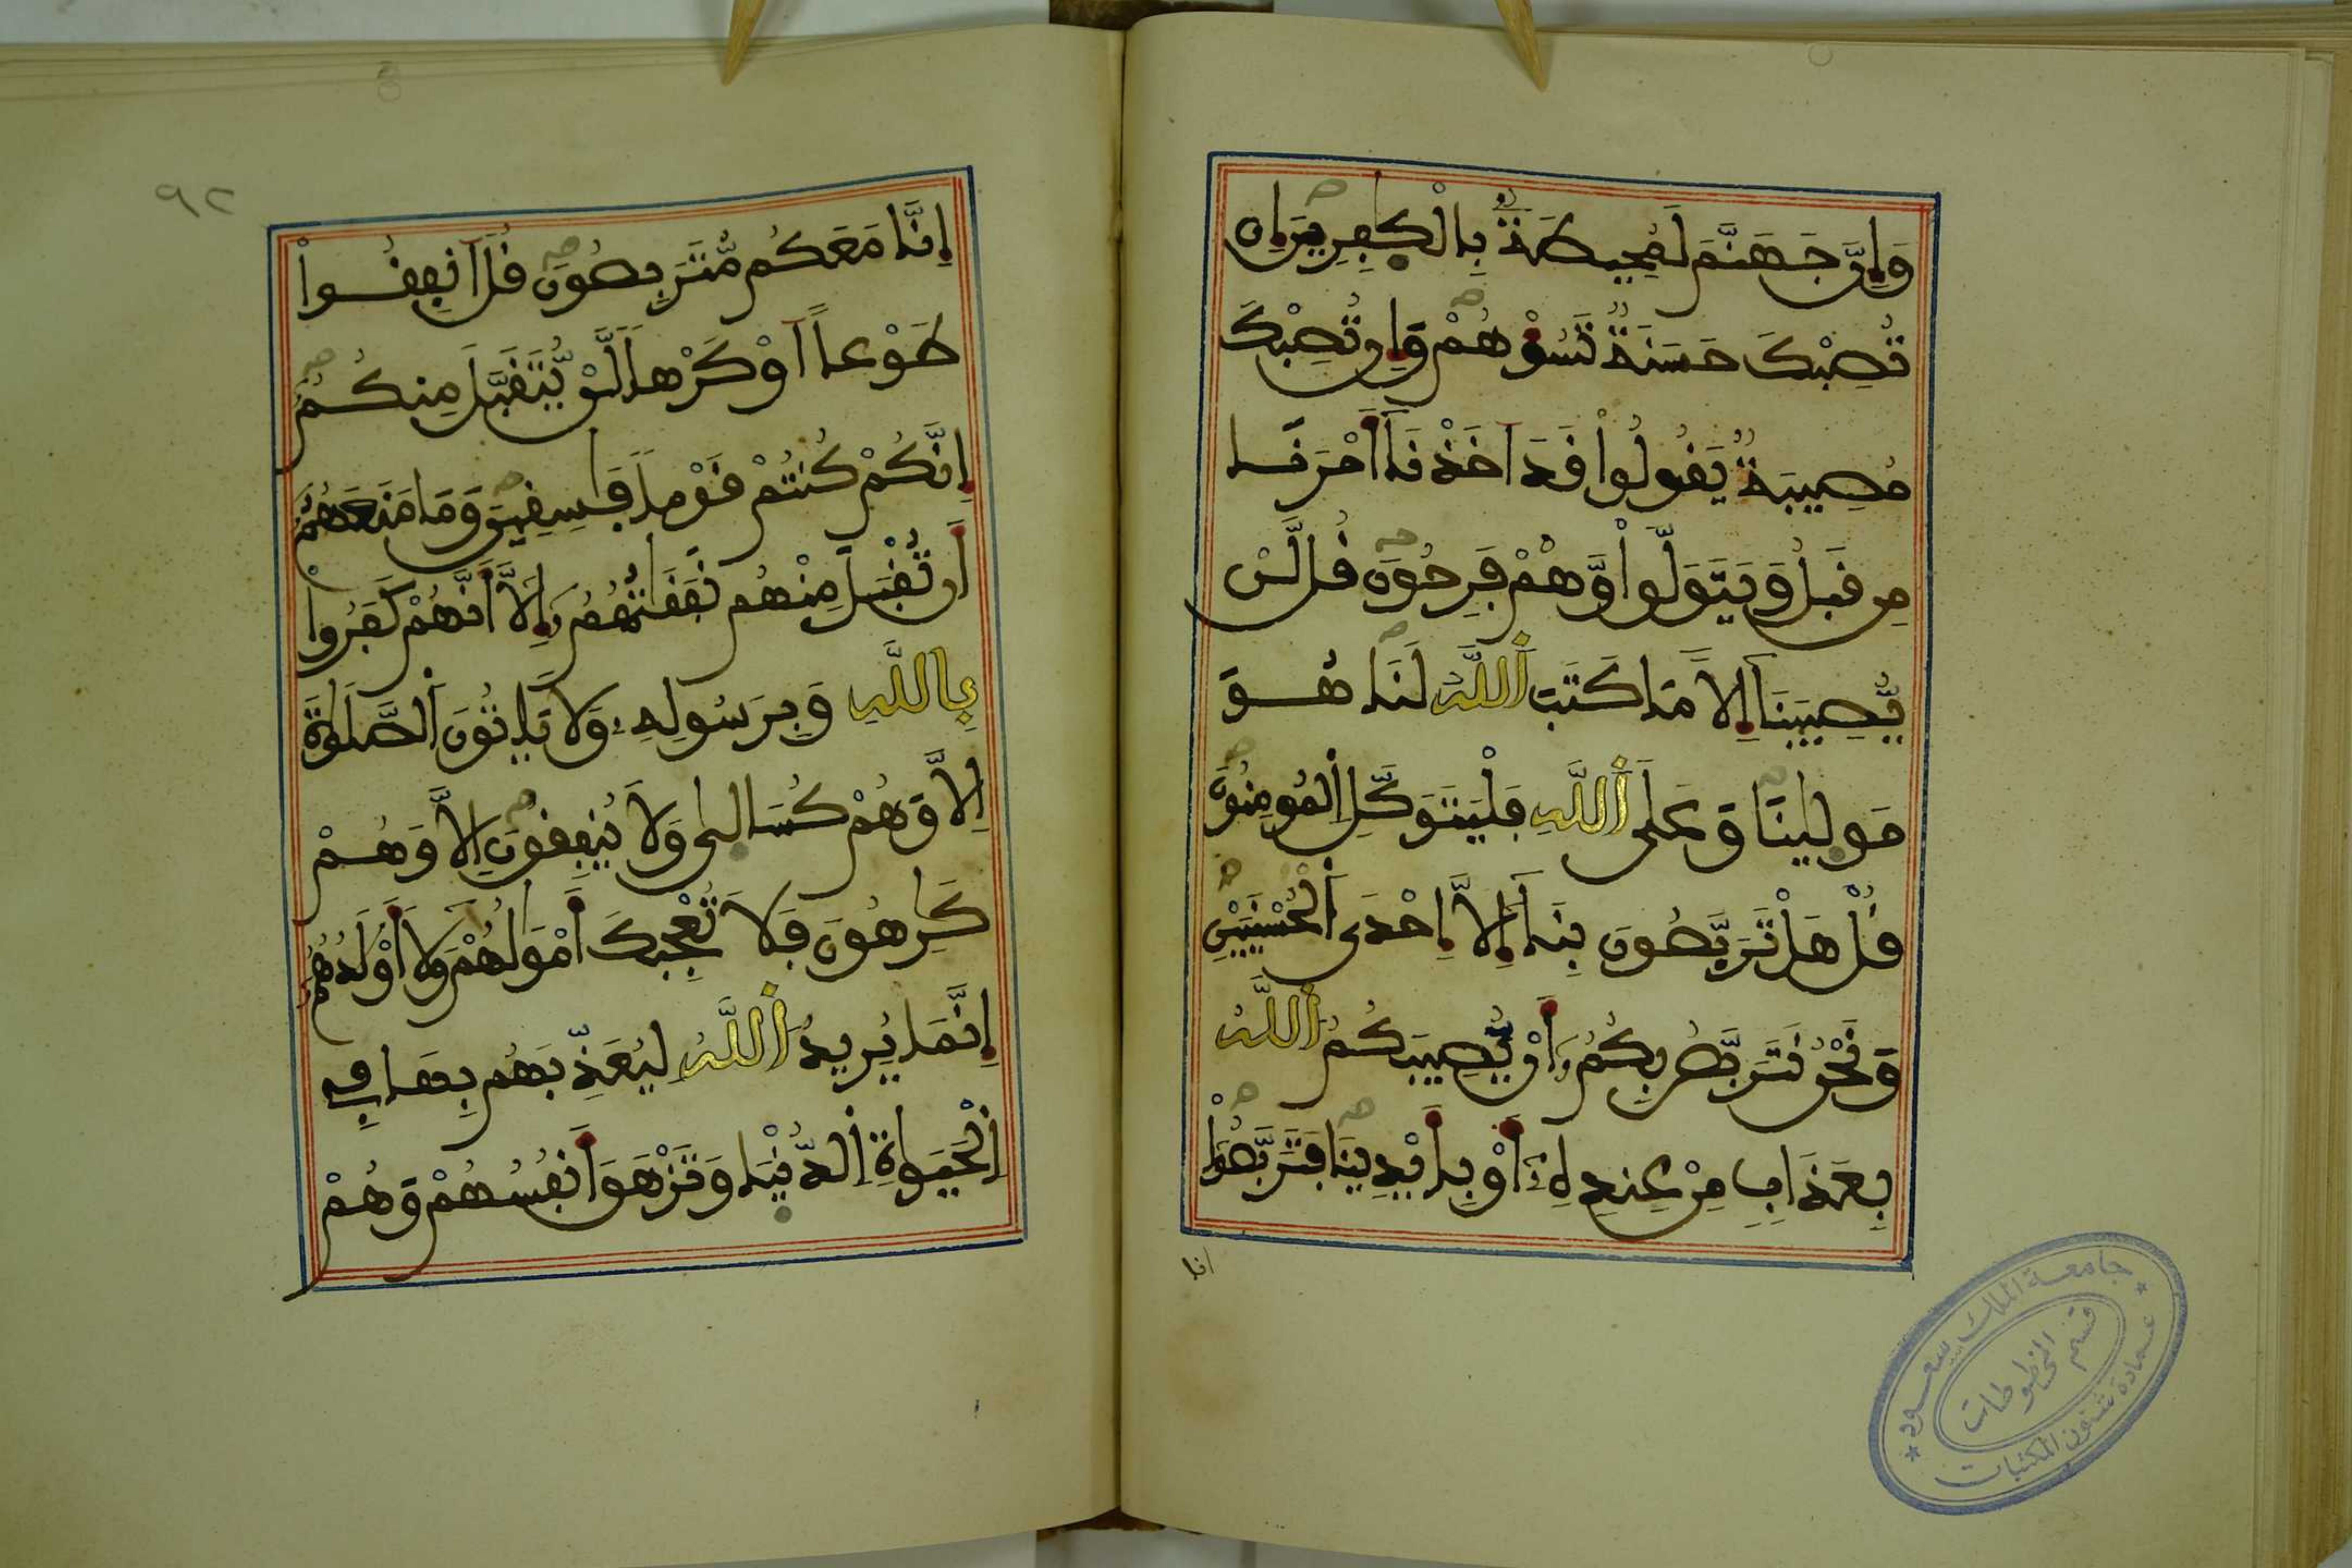 وَإِنَّ جَهَنَّمَ لَمُحِيطَةٌۢ بِالْكٰفِرِينَ إِن
تُصِبْكَ حَسَنَةٌ تَسُؤْهُمْ وَإِن تُصِبْكَ
مُصِيبَةٌ يَقُولُواْ قَدَ اَخَذْنَآ أَمْرَنَا
مِن قَبْلُ وَيَتَوَلَّواْ وَّهُمْ فَرِحُونَ قُل لَّنْ
يُّصِيبَنَآ إِلاَّ مَا كَتَبَ اَللَّهُ لَنَا هُوَ
مَوْلٰينَا وَعَلَى اَللَّهِ فَلْيَتَوَكَّلِ اِلْمُومِنُونَ
قُلْ هَلْ تَرَبَّصُونَ بِنَآ إِلاَّ إِحْدَى اَلْحُسْنَيَيْنِ
وَنَحْنُ نَتَرَبَّصُ بِكُمُۥ أَنْ يُّصِيبَكُمُ اُللَّهُ
بِعَذَابٍ مِّنْ عِندِهِۦٓ أَوْ بِأَيْدِينَا فَتَرَبَّصُواْ
انا
٩٢
إِنَّا مَعَكُم مُّتَرَبِّصُونَ قُلَ اَنفِقُواْ
طَوْعاً اَوْ كَرْهاً لَّنْ يُّتَقَبَّلَ مِنكُمُ
إِنَّكُمْ كُنتُمْ قَوْماً فَٰسِقِينَ وَمَا مَنَعَهُمُۥ
أَن تُقْبَلَ مِنْهُمْ نَفَقَٰتُهُمُۥ إِلاَّ أَنَّهُمْ كَفَرُواْ
بِاللَّهِ وَبِرَسُولِهِۦ وَلاَ يَاتُونَ اَلصَّلَوٰةَ
إِلاَّ وَهُمْ كُسَالٰى وَلاَ يُنفِقُونَ إِلاَّ وَهُمْ
كَٰرِهُونَ فَلاَ تُعْجِبْكَ أَمْوَٰلُهُمْ وَلآَ أَوْلَٰدُهُمُۥ
إِنَّمَا يُرِيدُ اُللَّهُ لِيُعَذِّبَهُم بِهَا فِي
اِلْحَيَوٰةِ اِلدُّنْيَا وَتَزْهَقَ أَنفُسُهُمْ وَهُمْ
جامعة الملك سعود
قسم المخطوطات
عمادة شئون المكتبات